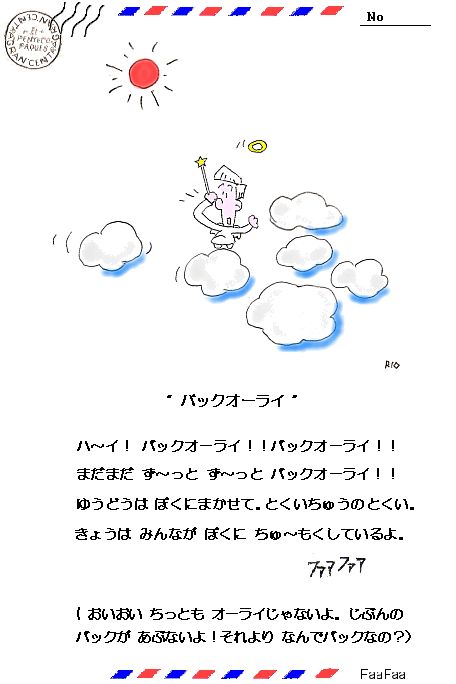 No
" バックオーライ "
ハ～イ！ バックオーライ！！バックオーライ！！
まだまだ ず～っと ず～っと バックオーライ！！
ゆうどうは ぼくにまかせて。とくいちゅうのとくい。
きょうは みんなが ぼくに ちゅ～もくしているよ。
ファファ
( おいおい ちっとも オーライじゃないよ。じぶんの
バックが あぶないよ！それより なんでバックなの？)
RIO
FaaFaa